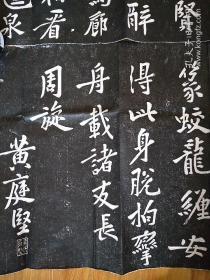 賢
醉
廊
看
泉
篆蛟龍纏安
得此身脫拘攣
舟載諸友長
周旋
黃庭堅